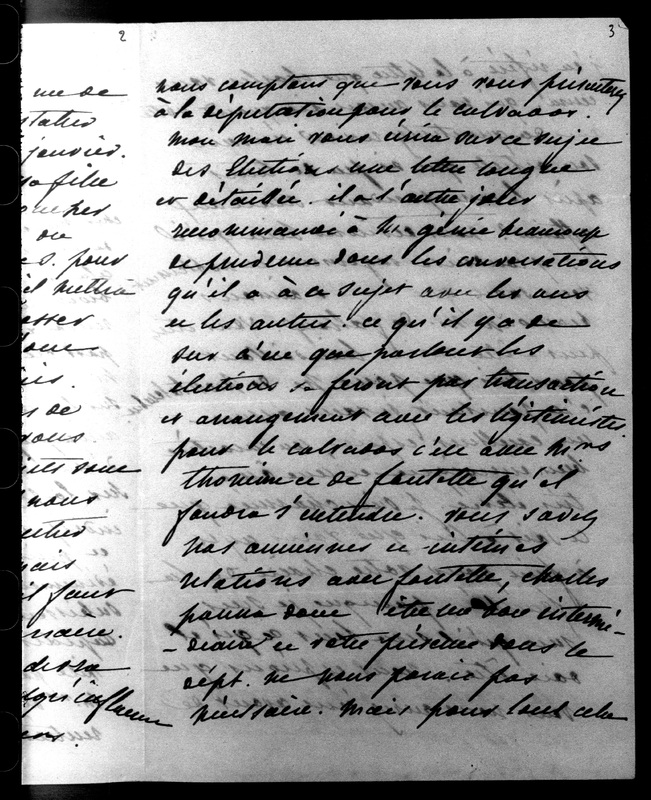 2
3
me de
janvier.
sa filie
ou
s. pour
il mettra
de
vous
nous
mais
il faut
devra
nous comptons que vous vous présenterez
à la députation pour le calvados.
mon mari vous écrira sur ce sujet
des Elections une lettre longue
et détaillée. il a l'autre jour
recommandé à Mr génie beaucoup
de prudence dans les conversations
qu'il a à ce sujet avec les uns
et les autres. ce qu'il y a de
sur c'est que partout les
élections se feront par transaction
et arrangement avec les légitimistes.
pour le calvados c'est avec Mrs
thomine et de fontette qu'il
faudra s'entendre. vous savez
nos anciennes et intimes
relations avec fontette, charles
pourra donc être un bon intermé-
-diaire et votre présence dans le
dépt. ne nous parait pas
nécessaire. mais pour tout cela